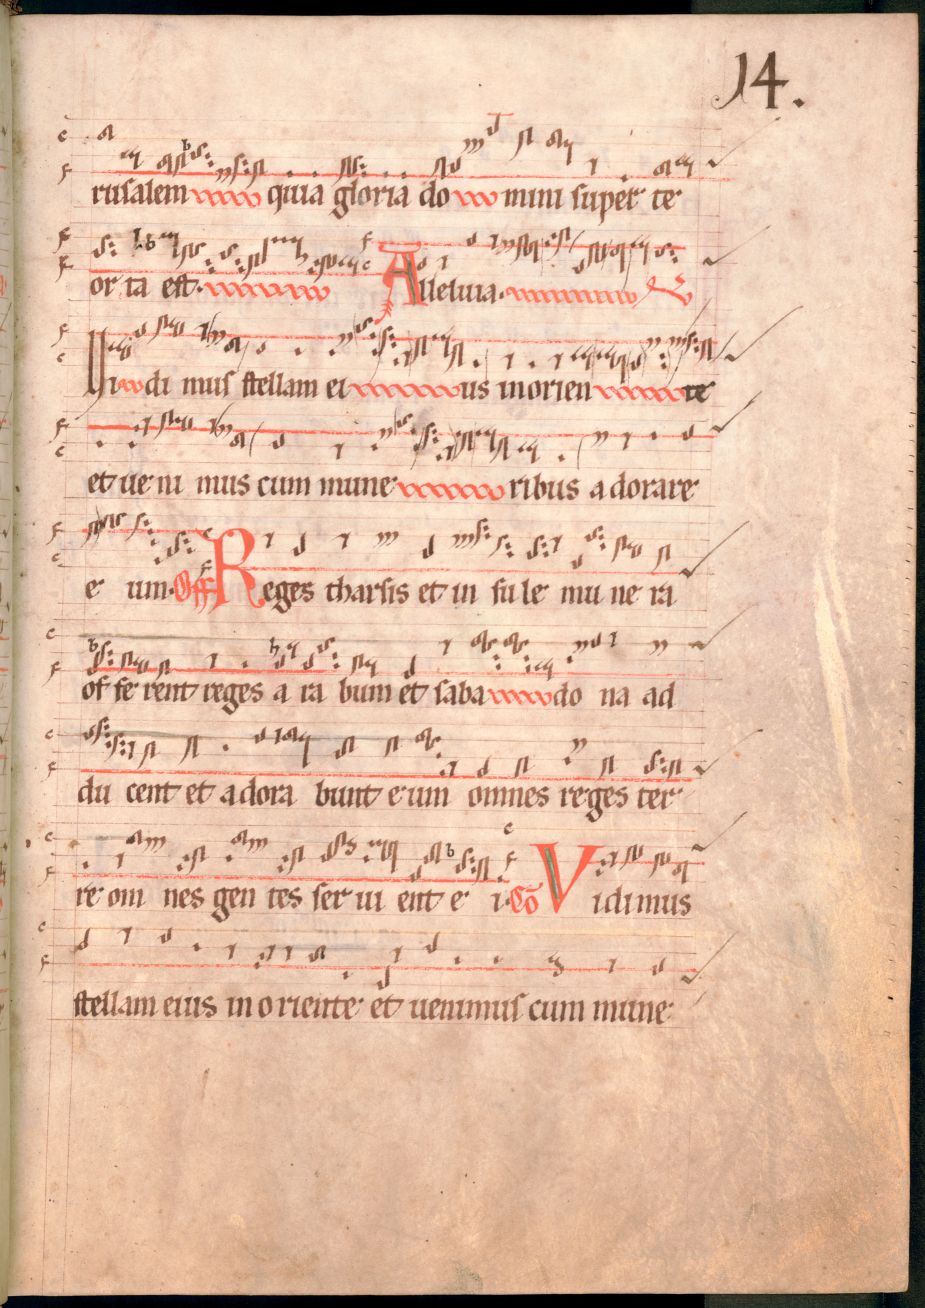 14.
rusalem quia gloria do mini super te
or ta est. Alleluia.
Vi di mus stellam ei us in orien te
et ue ni mus cum mune ribus adorare
e um. Off Reges tharsis et in su le mu ne ra
of fe rent reges a ra bum et saba do na ad
du cent et adora bunt eum omnes reges ter
re om nes gen tes ser ui ent e i. Co Vidimus
stellam eius in oriente et uenimus cum mune